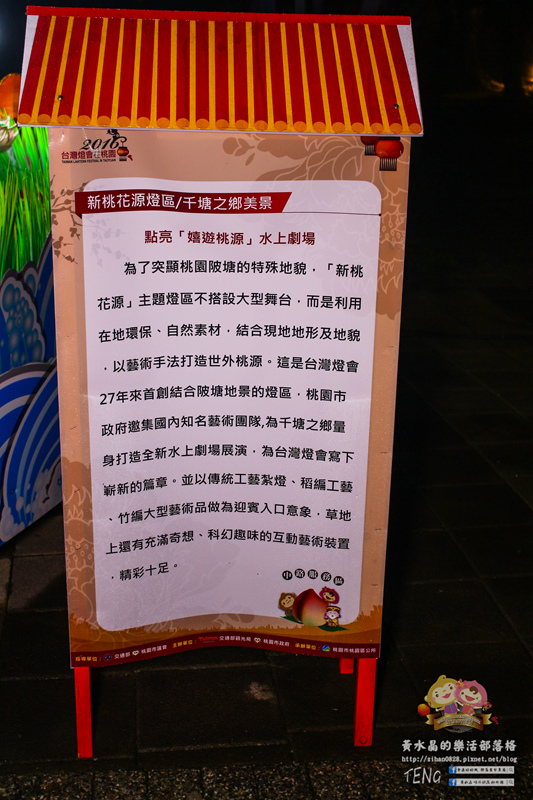 2016
台灣燈會在桃園
TAIWAN LANTERN FESTIVAL IN TAOYUAN
新桃花源燈區/千塘之鄉美景
點亮「嬉遊桃源」水上劇場
為了突顯桃園陂塘的特殊地貌，「新桃
花源」主題燈區不搭設大型舞台，而是利用
在地環保、自然素材，結合現地地形及地貌
，以藝術手法打造世外桃源。這是台灣燈會
27年來首創結合陂塘地景的燈區，桃園市
政府邀集國內知名藝術團隊,為千塘之鄉量
身打造全新水上劇場展演，為台灣燈會寫下
嶄新的篇章。並以傳統工藝紮燈、稻編工藝
、竹編大型藝術品做為迎賓入口意象，草地
上還有充滿奇想、科幻趣味的互動藝術裝置
，精彩十足。
中路服務區
指導單位： 交通部 桃園市議會 主辦單位： 交通部觀光局 桃園市政府 承辦單位： 桃園市桃園區公所
黃水晶的樂活部落格
http://sihan0828.pixnet.net/blog
TENG